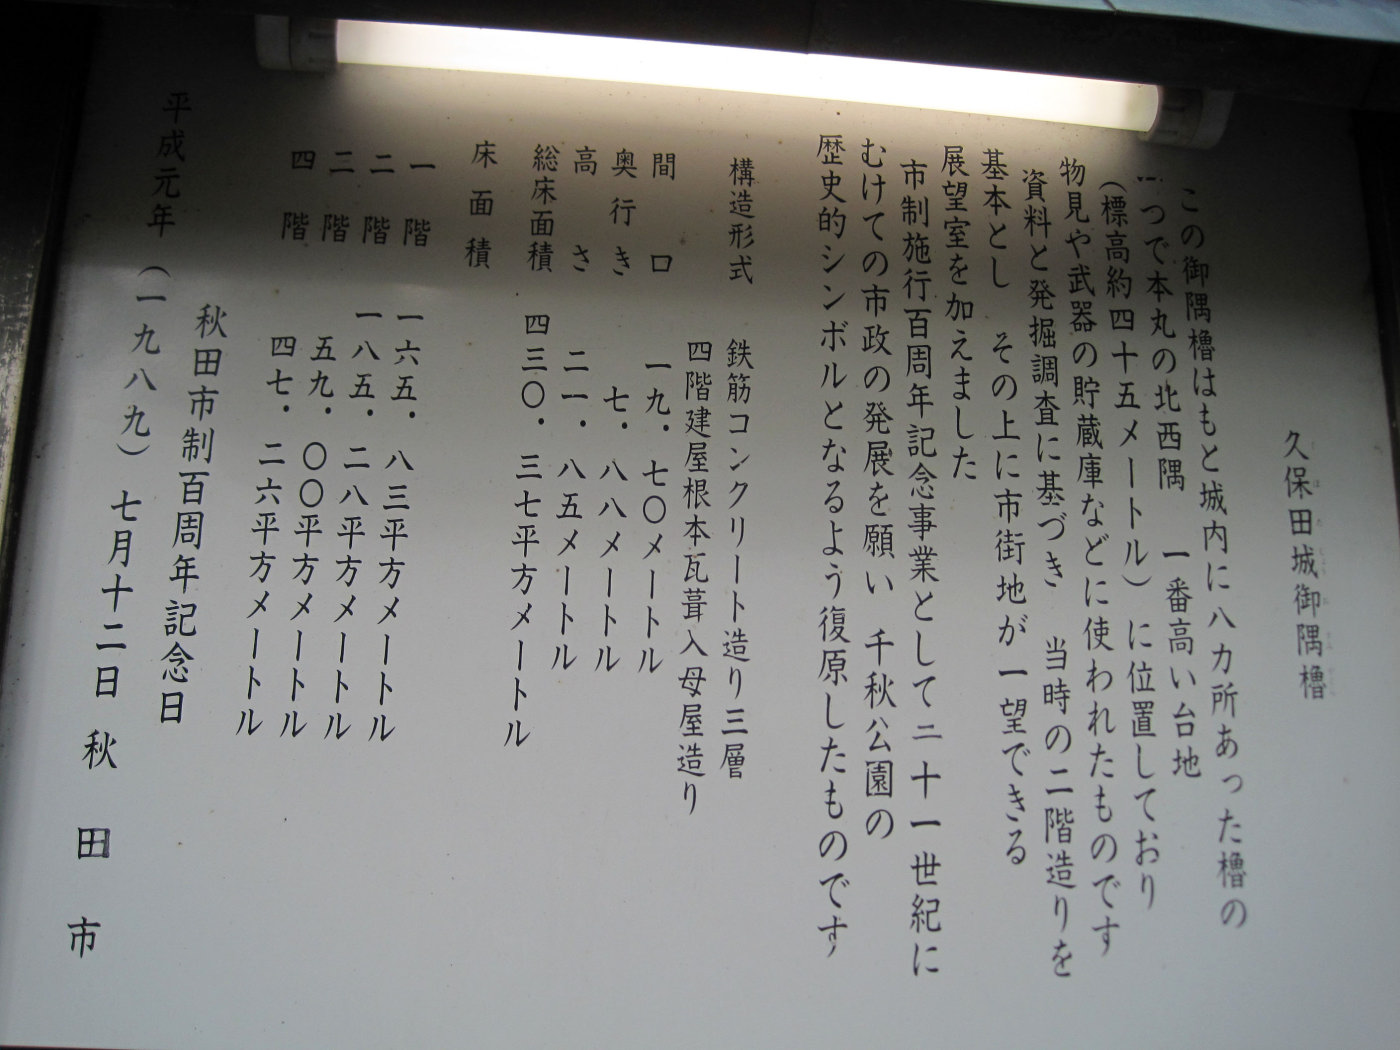 久保田城御隅櫓
この御隅櫓はもと城内に八カ所あった櫓の
一つで本丸の北西隅　一番高い台地
（標高約四十五メートル）に位置しており
物見や武器の貯蔵庫などに使われたものです
資料と発掘調査に基づき　当時の二階造りを
基本とし　その上に市街地が一望できる
展望室を加えました
市制施行百周年記念事業として二十一世紀に
むけての市政の発展を願い　千秋公園の
歴史的シンボルとなるよう復原したものです
構造形式　鉄筋コンクリート造り三層
四階建屋根本瓦葺入母屋造り
間口　一九・七〇メートル
奥行き　七・八八メートル
高さ　二一・八五メートル
総床面積　四三〇・三七平方メートル
床面積
一階　一六五・八三平方メートル
二階　一八五・二八平方メートル
三階　五九・〇〇平方メートル
四階　四七・二六平方メートル
秋田市制百周年記念日
平成元年（一九八九）七月十二日　秋田市